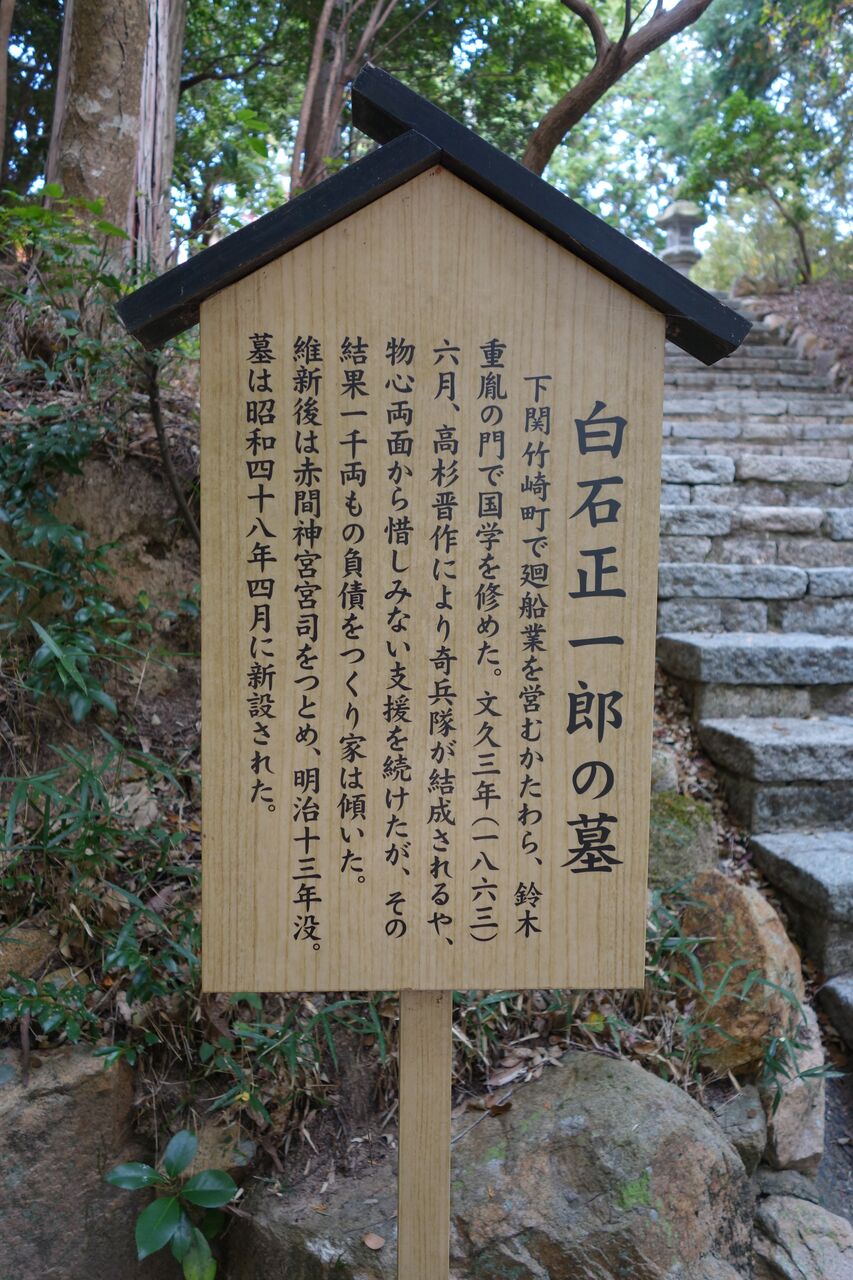 白石正一郎の墓
下関竹崎町で廻船業を営むかたわら、鈴木
重胤の門で国学を修めた。文久三年(一八六三)
六月、高杉晋作により奇兵隊が結成されるや、
物心両面から惜しみない支援を続けたが、その
結果一千両もの負債をつくり家は傾いた。
維新後は赤間神宮宮司をつとめ、明治十三年没。
墓は昭和四十八年四月に新設された。